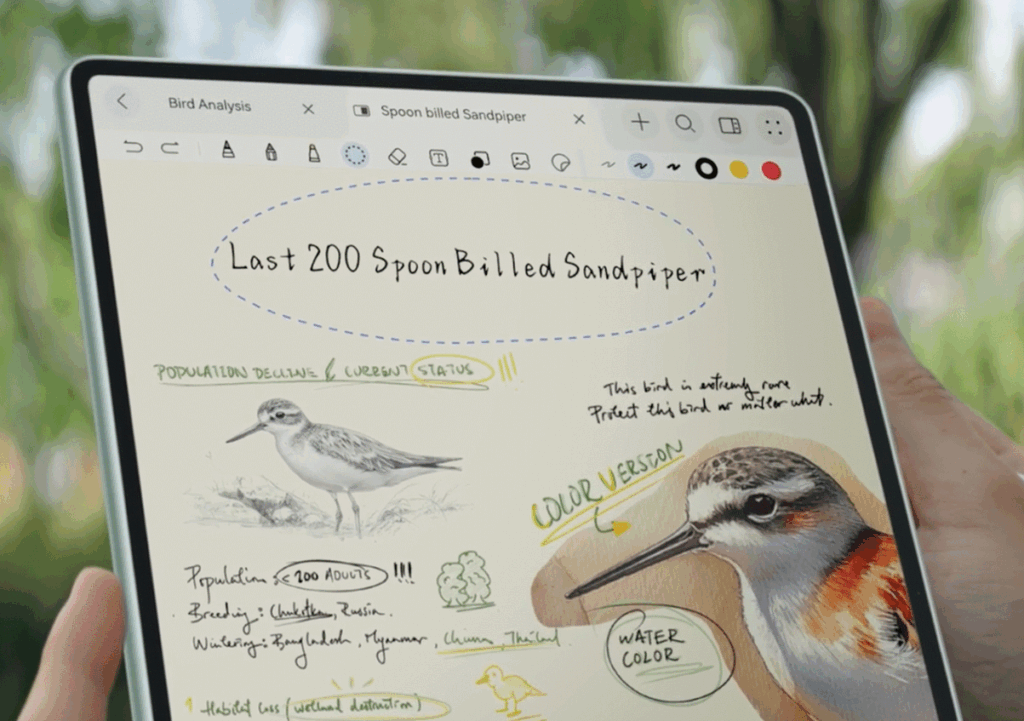 Bird Analysis
Spoon billed Sandpiper
Last 200 Spoon Billed Sandpiper
POPULATION DECLINE & CURRENT STATUS !!!
This bird is extremely rare
Protect this bird no matter what.
COLOR VERSION
Population : < 200 ADULTS !!!
Breeding : Chukotka, Russia.
Wintering : Bangladesh, Myanmar, China, Thailand
WATER
COLOR
Habitat Loss (wetland destruction)